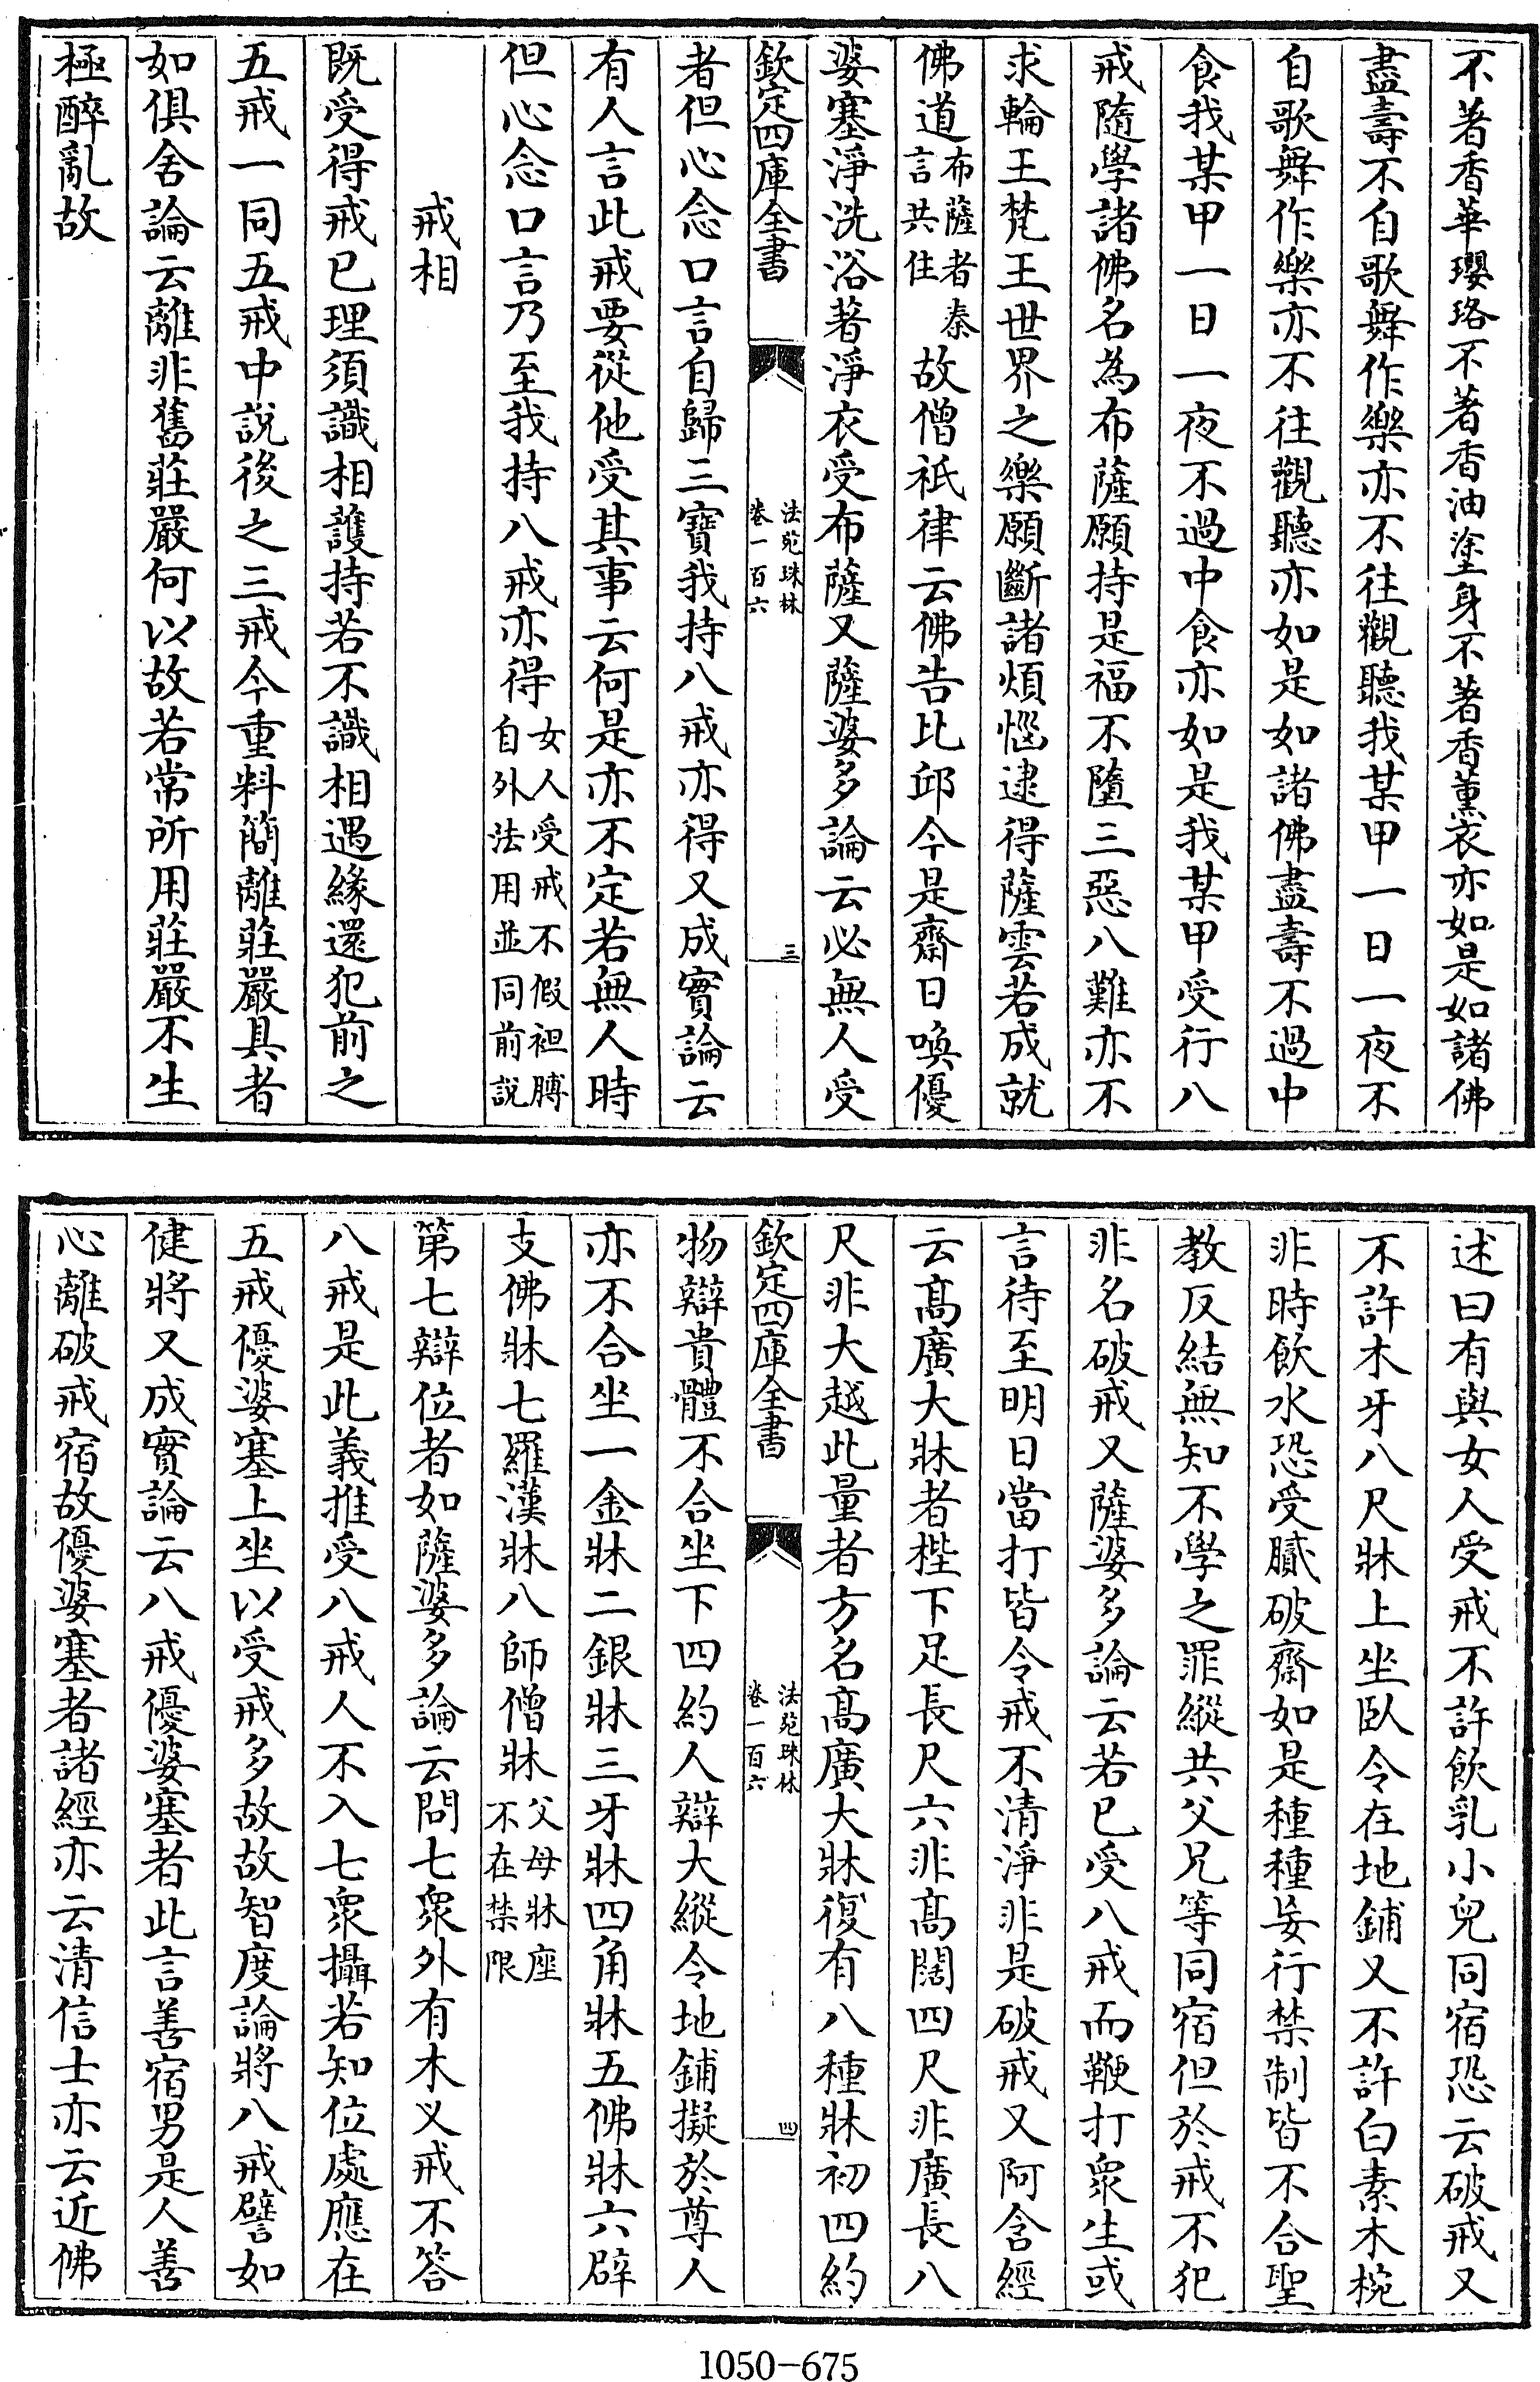 不著香華瓔珞不著香油塗身不著香薰衣亦如是如諸佛
盡壽不自歌舞作樂亦不往觀聽我某甲一日一夜不
自歌舞作樂亦不往觀聽亦如是如諸佛盡壽不過中
食我某甲一日一夜不過中食亦如是我某甲受行八
戒隨學諸佛名為布薩願持是福不墮三惡八難亦不
求輪王梵王世界之樂願斷諸煩惱逮得薩雲若成就
佛道布薩者秦言共住故僧祇律云佛告比邱今是齋日喚優
婆塞淨洗浴著淨衣受布薩又薩婆多論云必無人受
欽定四庫全書
法苑珠林
卷一百六
三
者但心念口言自歸三寶我持八戒亦得又成實論云
有人言此戒要從他受其事云何是亦不定若無人時
但心念口言乃至我持八戒亦得女人受戒不假袒膊自外法用並同前說
戒相
既受得戒已理須識相護持若不識相遇緣還犯前之
五戒一同五戒中說後之三戒今重料簡離莊嚴具者
如俱舍論云離非舊莊嚴何以故若常所用莊嚴不生
極醉亂故
述曰有與女人受戒不許飲乳小兒同宿恐云破戒又
不許木牙八尺牀上坐臥令在地鋪又不許白素木椀
非時飲水恐受膩破齋如是種種妄行禁制皆不合聖
教反結無知不學之罪縱共父兄等同宿但於戒不犯
非名破戒又薩婆多論云若已受八戒而鞭打眾生或
言待至明日當打皆令戒不清淨非是破戒又阿含經
云髙廣大牀者梐下足長尺六非髙闊四尺非廣長八
尺非大越此量者方名髙廣大牀復有八種牀初四約
欽定四庫全書
法苑珠林
卷一百六
四
物辯貴體不合坐下四約人辯大縱令地鋪擬於尊人
亦不合坐一金牀二銀牀三牙牀四角牀五佛牀六辟
支佛牀七羅漢牀八師僧牀父母牀座不在禁限
第七辯位者如薩婆多論云問七衆外有木义戒不答
八戒是此義推受八戒人不入七衆攝若知位處應在
五戒優婆塞上坐以受戒多故故智度論將八戒譬如
健將又成實論云八戒優婆塞者此言善宿男是人善
心離破戒宿故優婆塞者諸經亦云清信士亦云近佛
1050-675